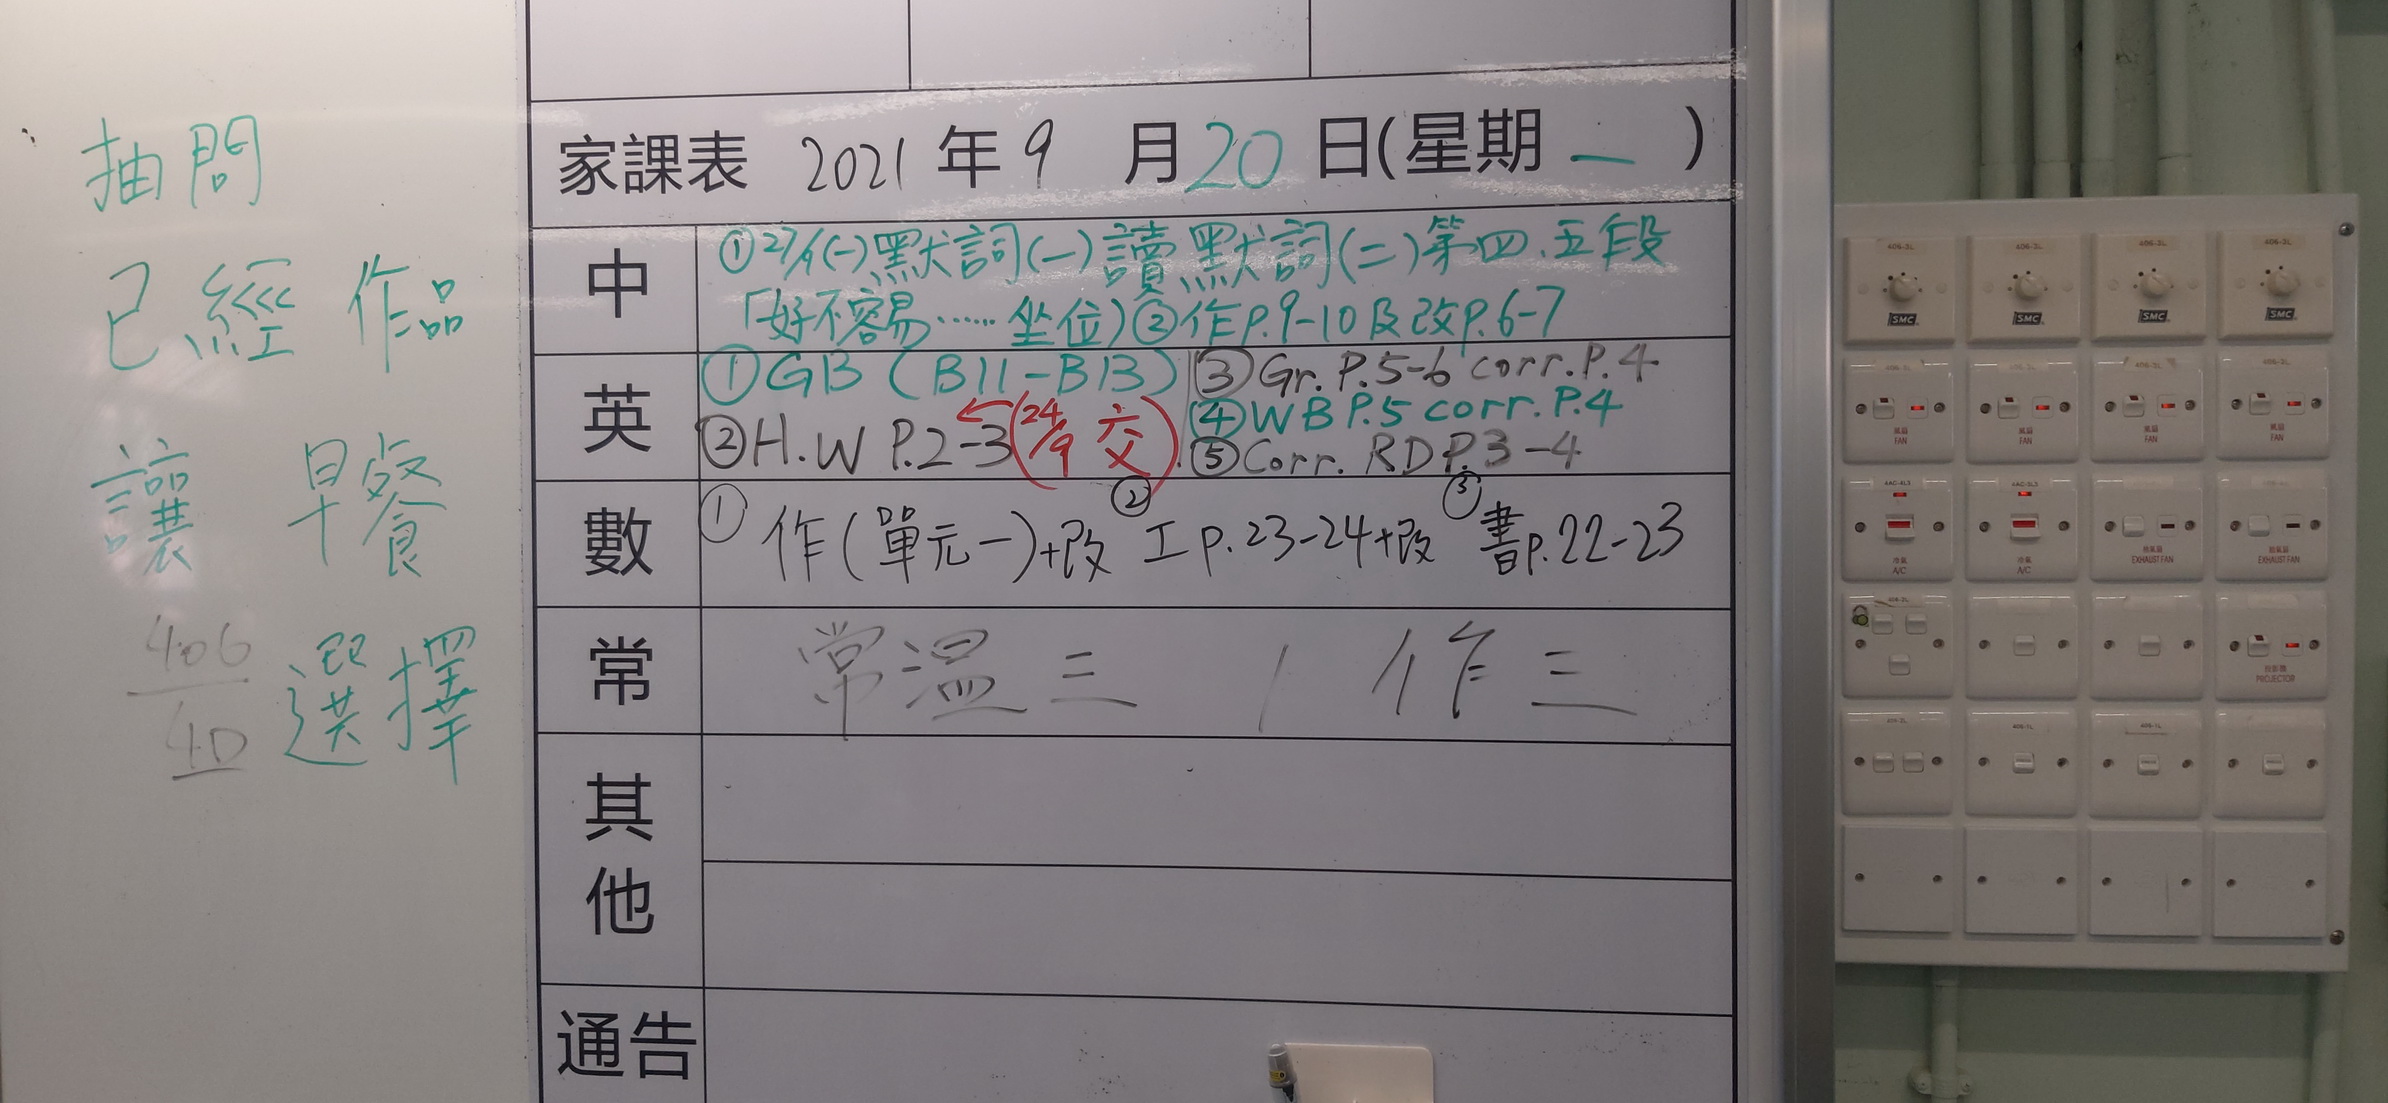 抽問
已經 作品
讓 早餐
406
4D
選擇
家課表 2021 年 9 月 20 日(星期 一 )
中
①27/9(一)默詞(一)讀默詞(二)第四.五段
「好不容易……坐位)②作P.9-10及改P.6-7
英
①GB (B11-B13)
②H.W P.2-3(24/9 交).
③Gr. P.5-6 corr. P.4
④WB P.5 corr. P.4
⑤Corr. RD P.3-4
數
① 作(單元一)+改 ② 工P.23-24+改 ③ 書P.22-23
常
常溫三 / 作三
其他
通告
406-2L
SMC SMC SMC SMC
風扇 FAN 風扇 FAN 風扇 FAN 風扇 FAN
冷氣 A/C 冷氣 A/C 抽氣扇 EXHAUST FAN 抽氣扇 EXHAUST FAN
投影機 PROJECTOR